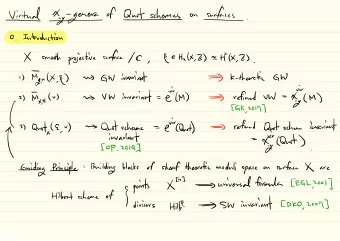 Virtual χ_-y-genera of Quot schemes on surfaces.
0 Introduction
X smooth projective surface /ℂ, β ∈ H₂(X,ℤ) ≅ H²(X,ℤ).
1) M̄_g,n(X,β) ⇝ GW invariant ⇒ k-theoretic GW
2) M̄_X,H(v) ⇝ VW invariant = e^vir(M) ⇒ refined VW = χ_-y^vir(M)
[GK, 2017]
3) Quot_X(β,v) ⇝ Quot scheme invariant = e^vir(Quot) ⇒ refined Quot scheme invariant
[OP, 2019] = χ_-y^vir(Quot)
Guiding Principle : Building blocks of sheaf theoretic moduli space on surface X are
Hilbert scheme of { points X^[n] → universal formulas [EGL, 2001]
divisors Hilb^β → SW invariant [DKO, 2007]